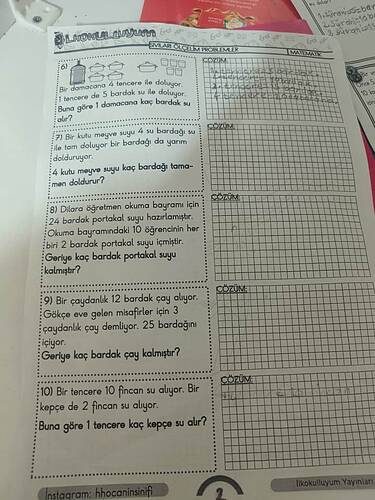 SIVILARI ÖLÇELİM PROBLEMLER
MATEMATİK
6)
Bir damacana 4 tencere ile doluyor.
1 tencere de 5 bardak su ile doluyor.
Buna göre 1 damacana kaç bardak su
alır?
ÇÖZÜM:
7) Bir kutu meyve suyu 4 su bardağı su
ile tam doluyor bir bardağı da yarım
dolduruyor.
4 kutu meyve suyu kaç bardağı tama-
men doldurur?
ÇÖZÜM:
8) Dilara öğretmen okuma bayramı için
24 bardak portakal suyu hazırlamıştır.
Okuma bayramındaki 10 öğrencinin her
biri 2 bardak portakal suyu içmiştir.
Geriye kaç bardak portakal suyu
kalmıştır?
ÇÖZÜM:
9) Bir çaydanlık 12 bardak çay alıyor.
Gökçe eve gelen misafirler için 3
çaydanlık çay demliyor. 25 bardağını
içiyor.
Geriye kaç bardak çay kalmıştır?
ÇÖZÜM:
10) Bir tencere 10 fincan su alıyor. Bir
kepçe de 2 fincan su alıyor.
Buna göre 1 tencere kaç kepçe su alır?
ÇÖZÜM:
Instagram: hhocaninsinifi
2
İlkokulluyum Yayınları